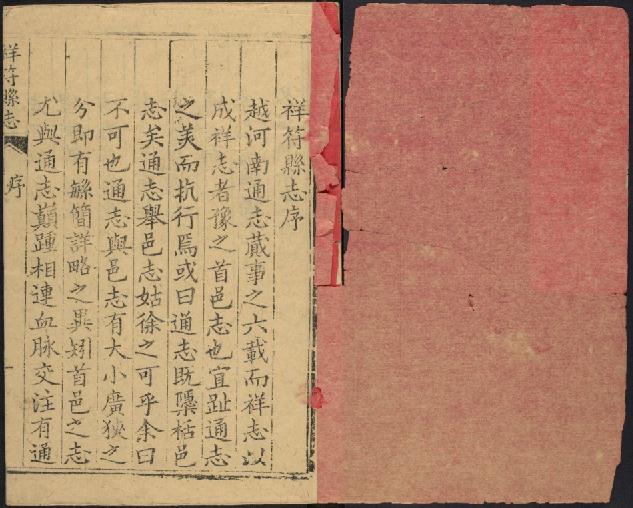 祥符縣志序
越河南通志蕆事之六載而祥志以
成祥志者豫之首邑志也宜趾通志
之美而抗行焉或曰通志既隱栝邑
志矣通志舉邑志姑徐之可乎余曰
不可也通志與邑志有大小廣狹之
分即有緐簡詳略之異矧首邑之志
尤與通志巔踵相連血脉交注有通
祥符縣志
序